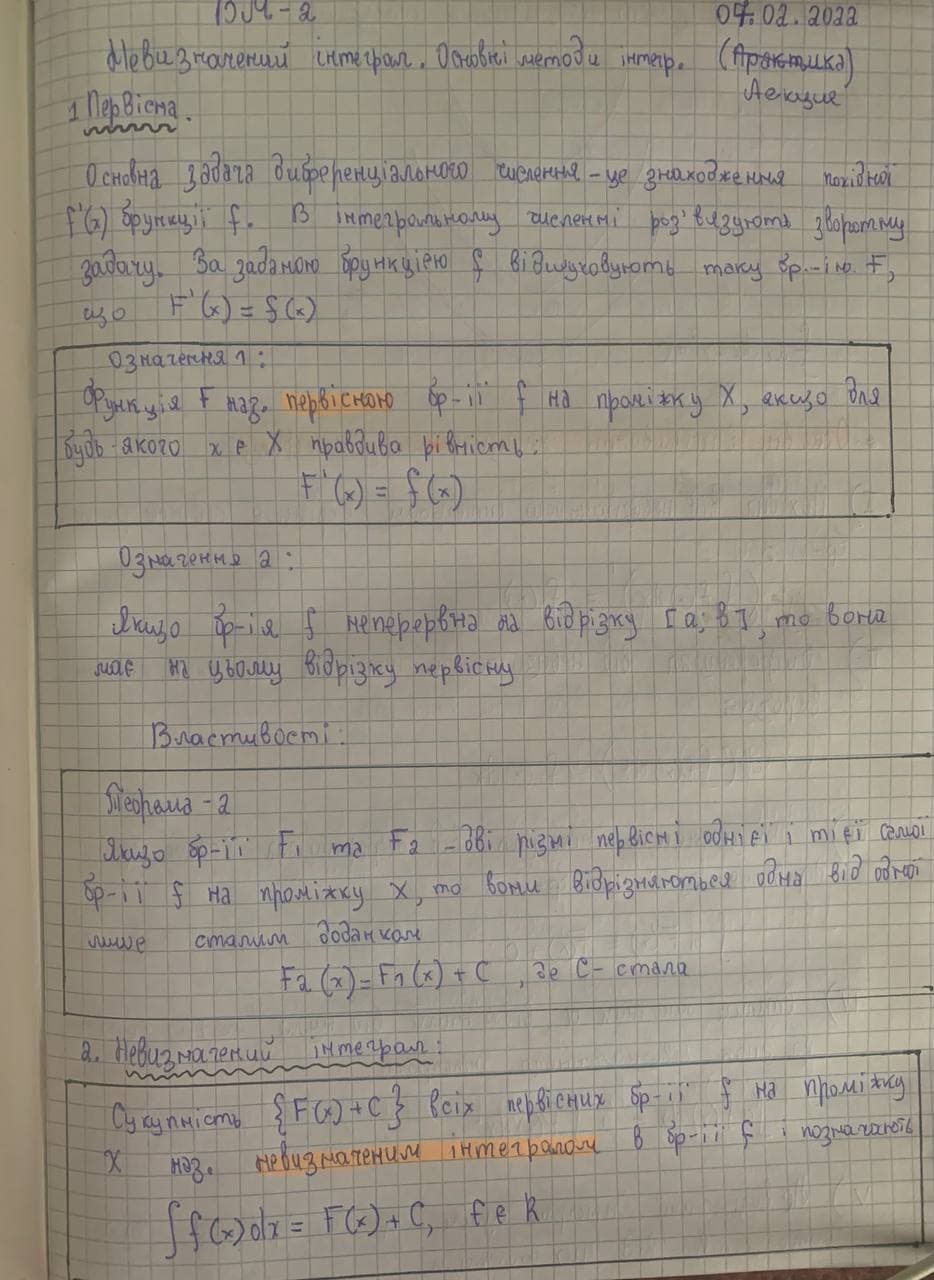 ВМ-2 07.02.2022
Невизначений інтеграл. Основні методи інтегр. (Практика)
Лекция
1 Первісна.
Основна задача диференціального числення - це знаходження похідної
f'(x) функції f. В інтегральному численні роз'вязують зворотну
задачу. За заданою функцією f відшуковують таку ф.-ію F,
що F'(x) = f(x)
Означення 1:
Функція F наз. первісною ф-ії f на проміжку X, якщо для
будь-якого x є X правдива рівність:
F'(x) = f(x)
Означення 2:
Якщо ф-ія f неперервна на відрізку [a; b], то вона
має на цьому відрізку первісну
Властивості:
Теорема-2
Якщо ф-ії F1 та F2 - дві різні первісні однієї і тієї самої
ф-ії f на проміжку X, то вони відрізняються одна від одної
лише сталим доданком
F2(x) = F1(x) + C, де C - стала
2. Невизначений інтеграл:
Сукупність {F(x) + C} всіх первісних ф-ії f на проміжку
X наз. невизначеним інтегралом в ф-ії f і позначають
∫f(x)dx = F(x) + C, f є R